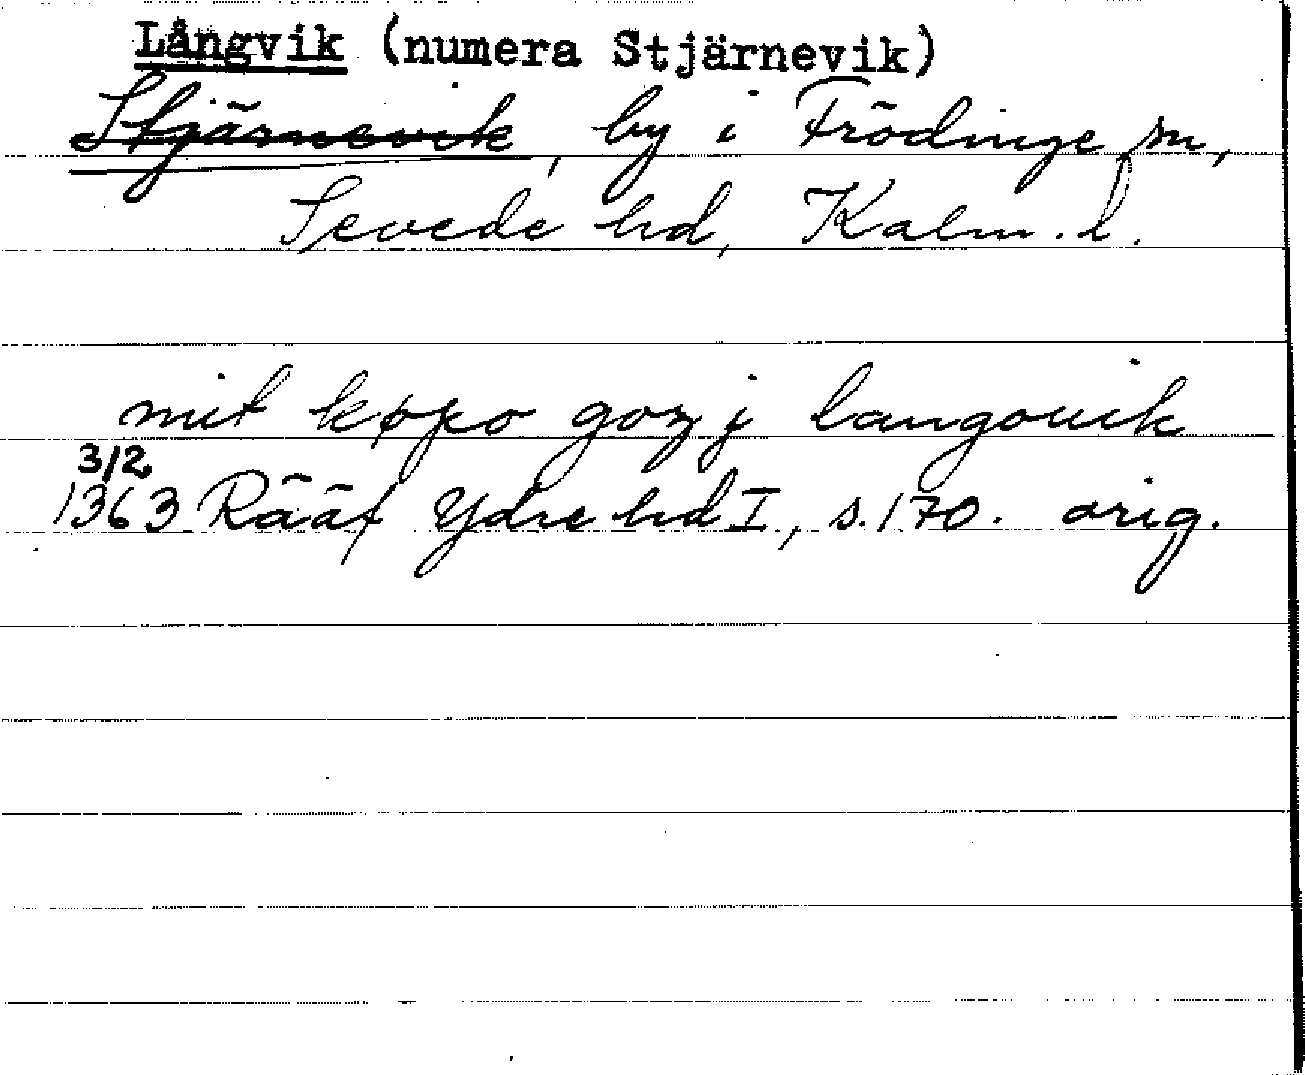 Långvik (numera Stjärnevik)
Stjärnevik, by i Frödinge sn,
Sevede hd, Kalm. l.
mit køpo goz j langouik
3/2
1363 Rääf Ydre hd I, s. 170. orig.